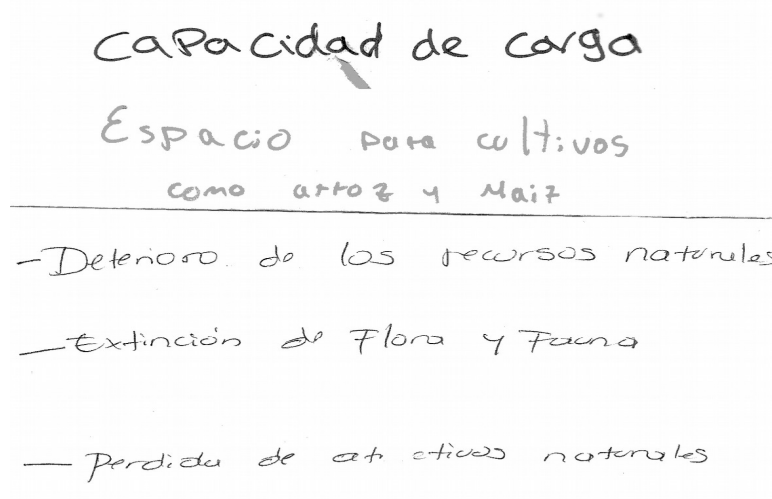 Capacidad de carga
Espacio para cultivos
como arroz y Maiz
- Deterioro de los recursos naturales
- Extinción de Flora y Fauna
- Perdida de atractivos naturales